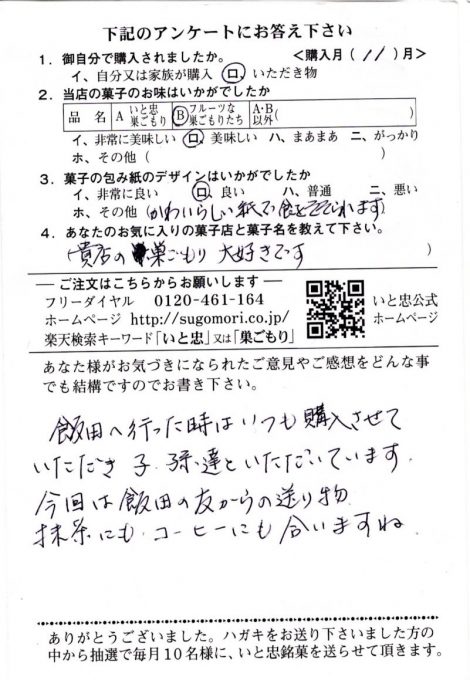 下記のアンケートにお答え下さい
1．御自分で購入されましたか。 ＜購入月（11）月＞
イ、自分又は家族が購入 ロ、いただき物
2．当店の菓子のお味はいかがでしたか
品 名 A いと忠巣ごもり B フルーツな巣ごもりたち A・B以外（ ）
イ、非常に美味しい ロ、美味しい ハ、まあまあ ニ、がっかり
ホ、その他（ ）
3．菓子の包み紙のデザインはいかがでしたか
イ、非常に良い ロ、良い ハ、普通 ニ、悪い
ホ、その他（かわいらしい紙で食をそそられます）
4．あなたのお気に入りの菓子店と菓子名を教えて下さい。
（貴店の巣ごもり 大好きです ）
― ご注文はこちらからお願いします ―
フリーダイヤル 0120-461-164
ホームページ http://sugomori.co.jp/
楽天検索キーワード「いと忠」又は「巣ごもり」
いと忠公式
ホームページ
あなた様がお気づきになられたご意見やご感想をどんな事
でも結構ですのでお書き下さい。
飯田へ行った時はいつも購入させて
いただき 子、孫達といただいています。
今回は飯田の友からの送り物
抹茶にも コーヒーにも 合いますね
ありがとうございました。ハガキをお送り下さいました方の
中から抽選で毎月10名様に、いと忠銘菓を送らせて頂きます。